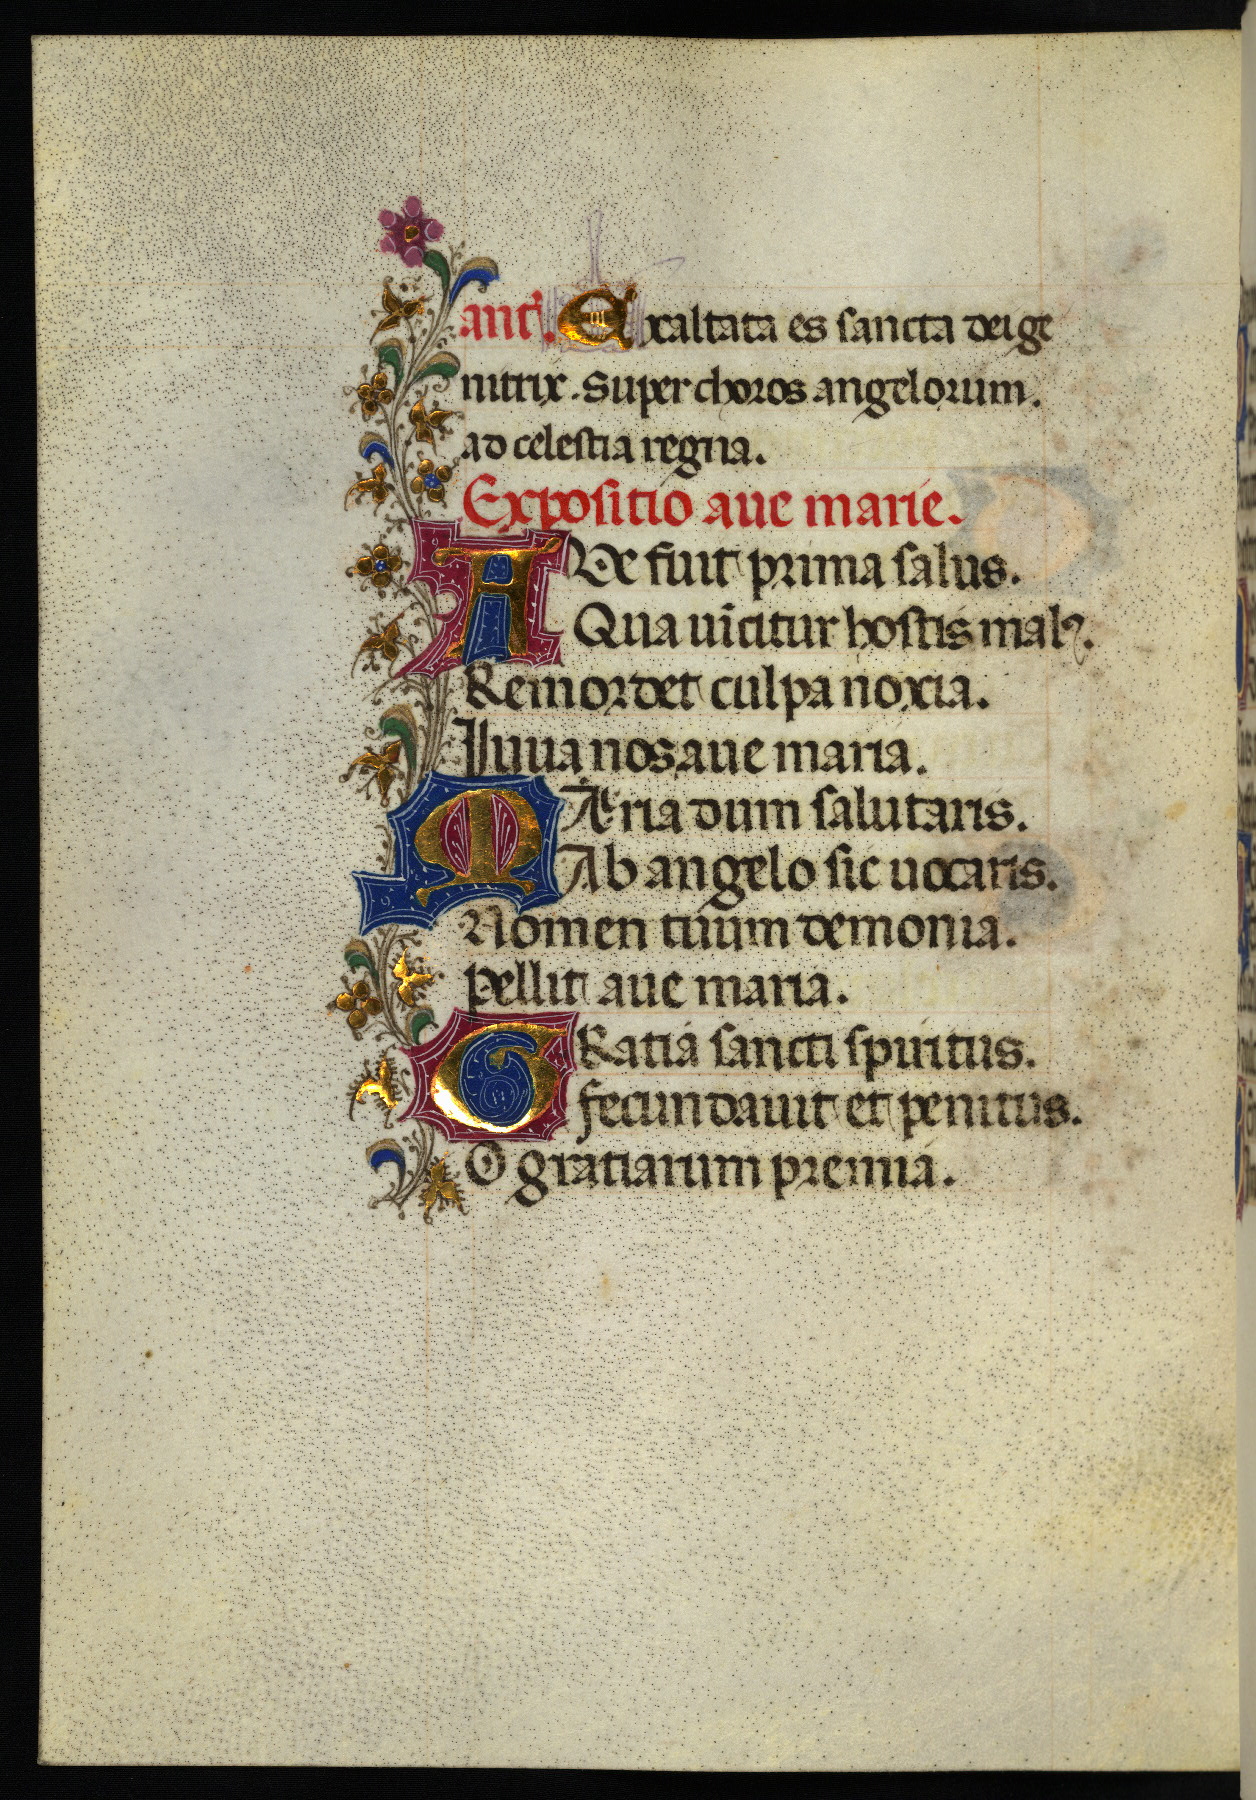 ant̃. Exaltata es sancta dei ge
nitrix. Super choros angelorum.
ad celestia regna.
Expositio aue marie.
AVe fuit prima salus.
Qua uīcitur hostis malꝰ.
Remordet culpa noxia.
Iuua nos aue maria.
MAria dum salutaris.
Ab angelo sic uocaris.
Nomen tuum demonia.
Pellit aue maria.
GRatia sancti spiritus.
fecundauit et penitus.
O gratiarum premia.